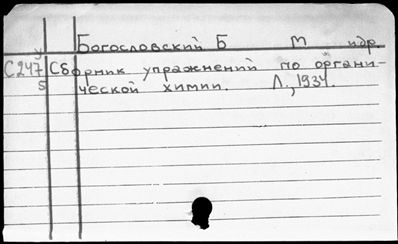 Богословский Б М идр
у
С247 Сборник упражнений по органи-
5 ческой химии. Л., 1934.